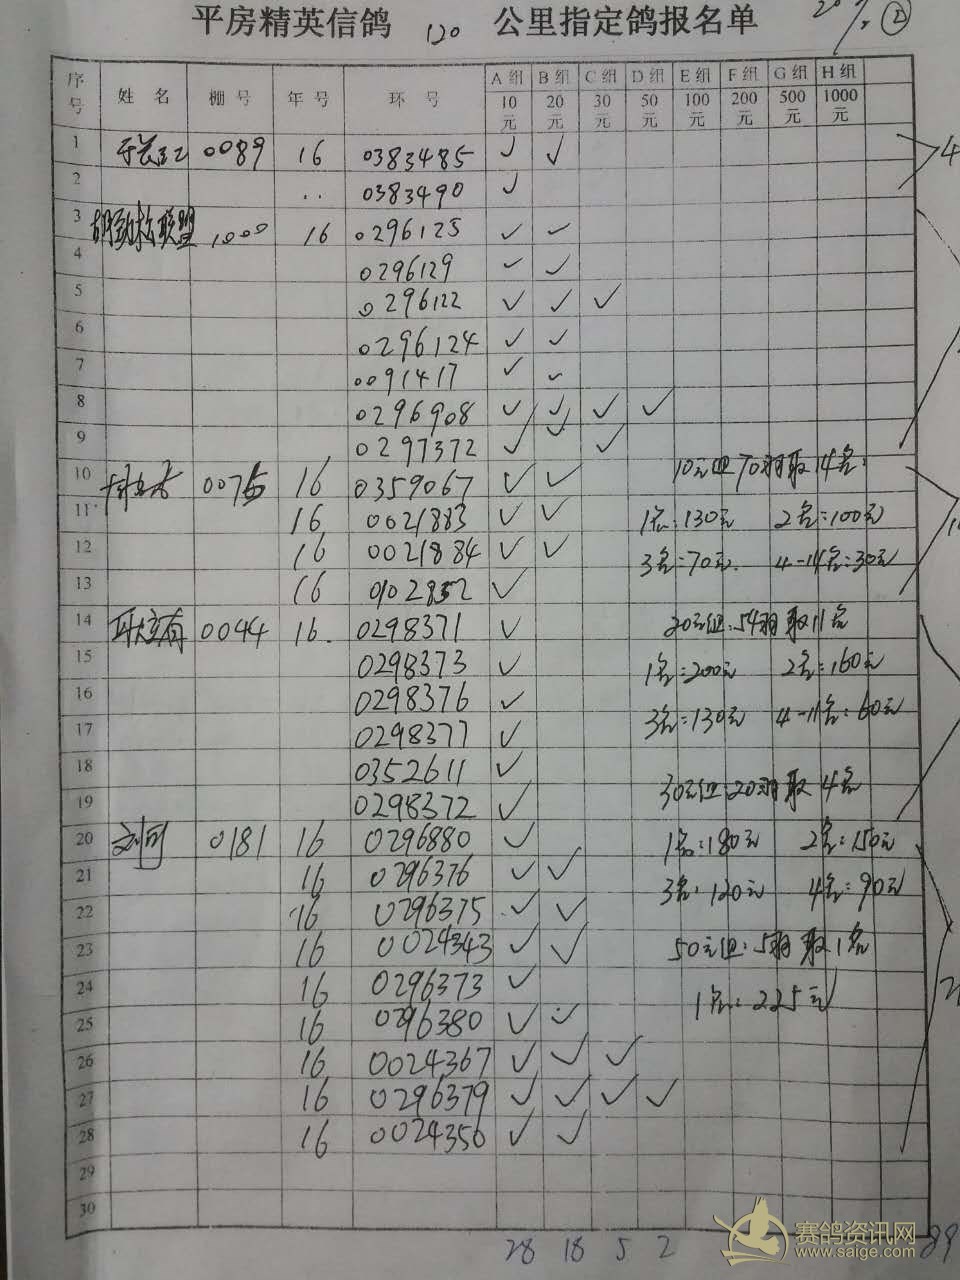 平房精英信鸽 120 公里指定鸽报名单 ②
序号 姓 名 棚 号 年 号 环 号 A 组 10 元 B 组 20 元 C 组 30 元 D 组 50 元 E 组 100 元 F 组 200 元 G 组 500 元 H 组 1000 元
1 0089 16 0383485 ✓ ✓
2 .. 0383490 ✓
3 胡劲松联盟 1000 16 0296125 ✓ ✓
4 0296129 ✓ ✓
5 0296122 ✓ ✓ ✓
6 0296124 ✓ ✓
7 0091417 ✓ ✓
8 0296908 ✓ ✓ ✓ ✓
9 0297372 ✓ ✓ ✓
10 16 0359067 ✓ ✓ 10元组70羽取14名:
11 16 0021883 ✓ ✓ 1名:130元 2名:100元
12 16 0021884 ✓ ✓ 3名:70元. 4-14名:30元
13 16 0102852 ✓
14 0044 16. 0298371 ✓ 20元组:54羽取11名
15 0298373 ✓ 1名:200元 2名:160元
16 0298376 ✓
17 0298377 ✓ 3名:130元 4-11名:60元
18 0352611 ✓
19 0298372 ✓ 30元组:20羽取4名
20 刘可 0181 16 0296880 ✓ 1名:180元 2名:150元
21 16 0296376 ✓ ✓ 3名:120元 4名:90元
22 16 0296375 ✓ ✓
23 16 0024343 ✓ ✓ 50元组:5羽取1名
24 16 0296373 ✓
25 16 0296380 ✓ ✓ 1名:225元
26 16 0024367 ✓ ✓ ✓
27 16 0296379 ✓ ✓ ✓ ✓
28 16 0024350 ✓ ✓
29
30
28 18 5 2 89
赛鸽资讯网
www.saige.com